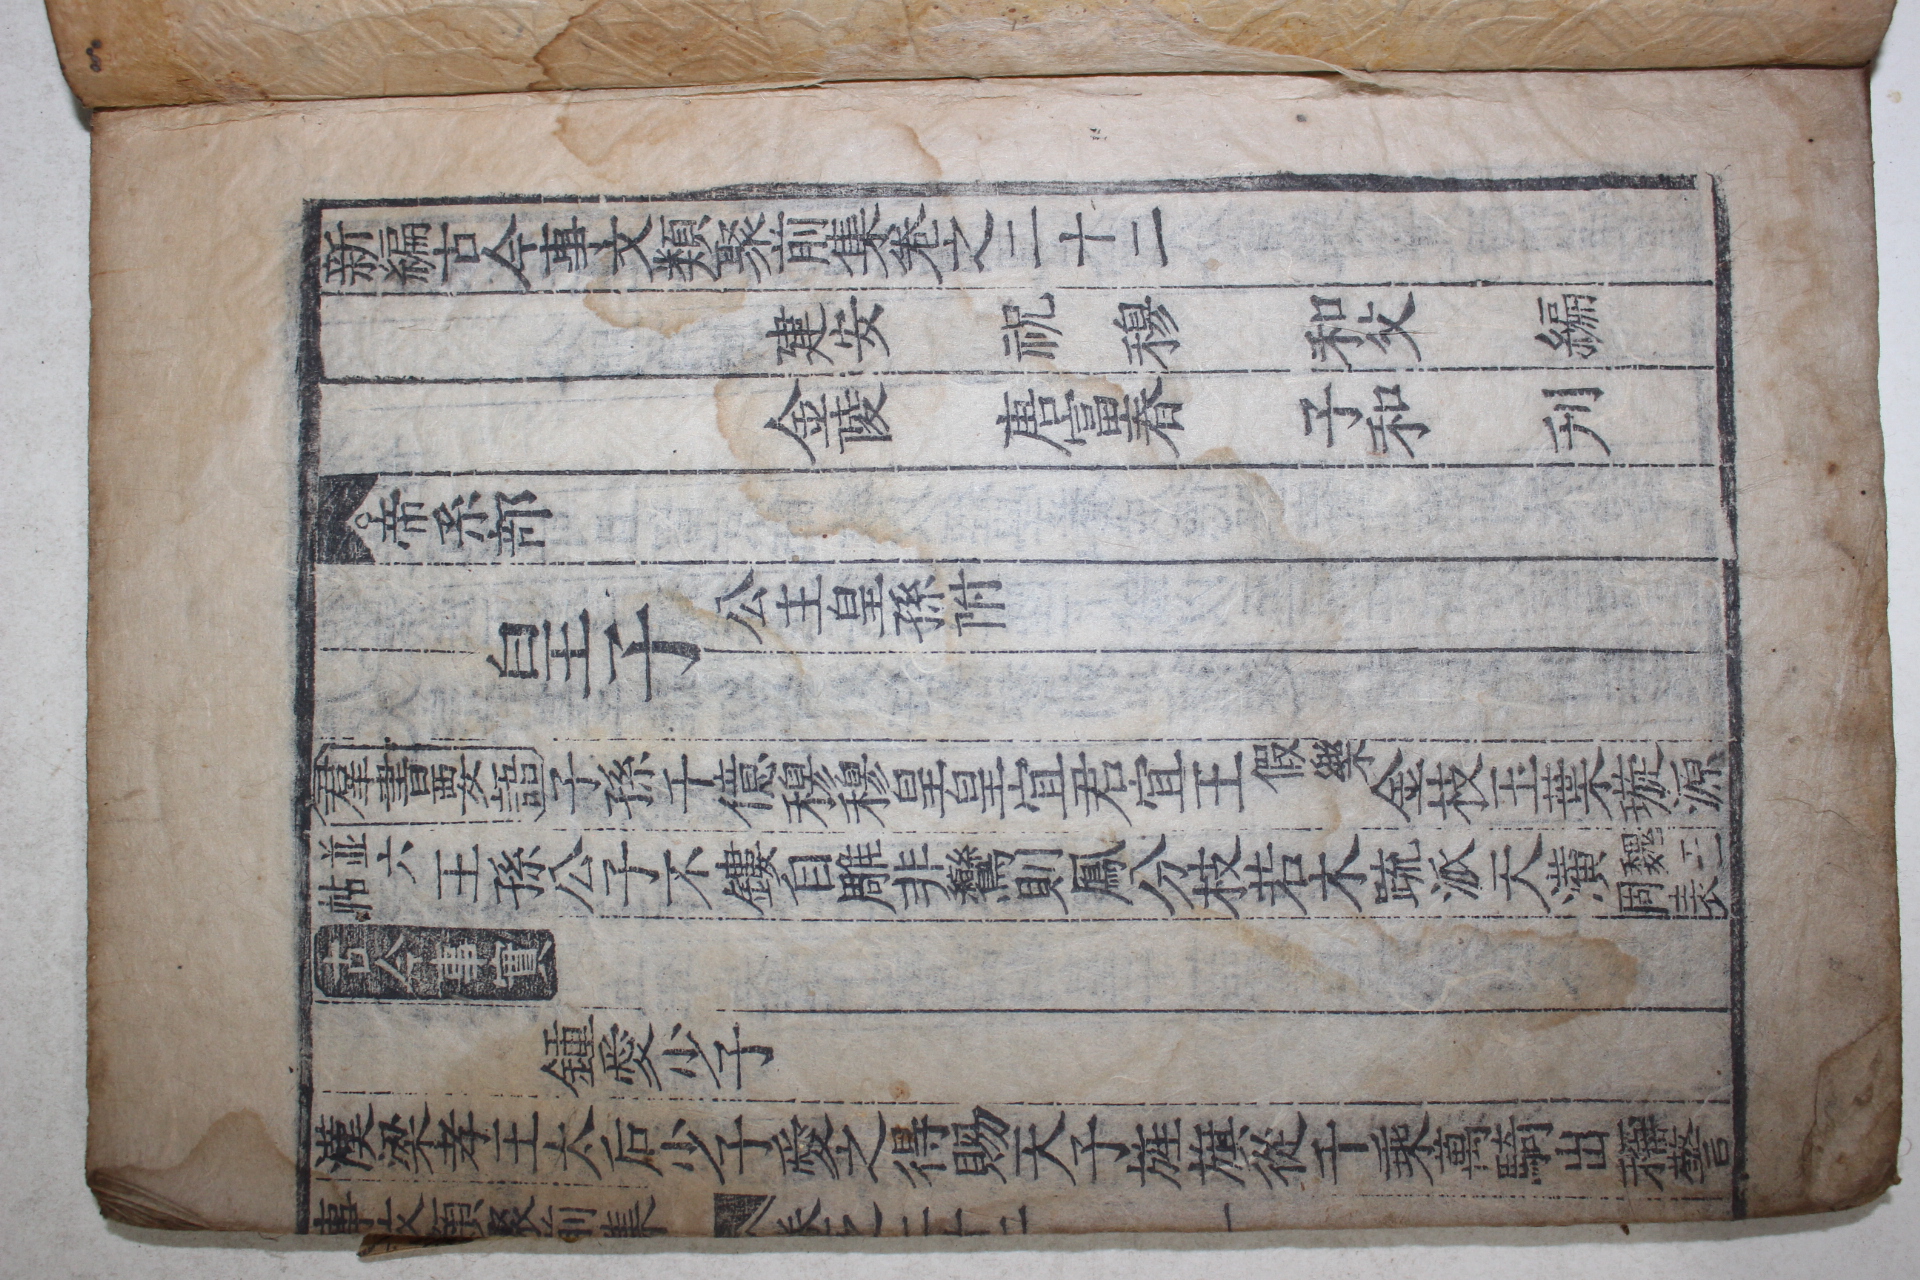 新編古今事文類聚前集卷之二十二
建安 祝 穆 和父 編
金陵 唐富春 子和 刋
帝系部
皇子 公主皇孫附
羣書要語 子孫千億穆穆皇皇宜君宜王 假樂 金枝玉葉 璿源
並六帖 王孫公子不鏤自雕非鸞則鳳分枝若木疏派天潢
古今事實
鍾愛少子
漢梁孝王太后少子愛之得賜天子旌旗從千乘萬騎出蹕警
事文類聚前集 卷之二十二 一